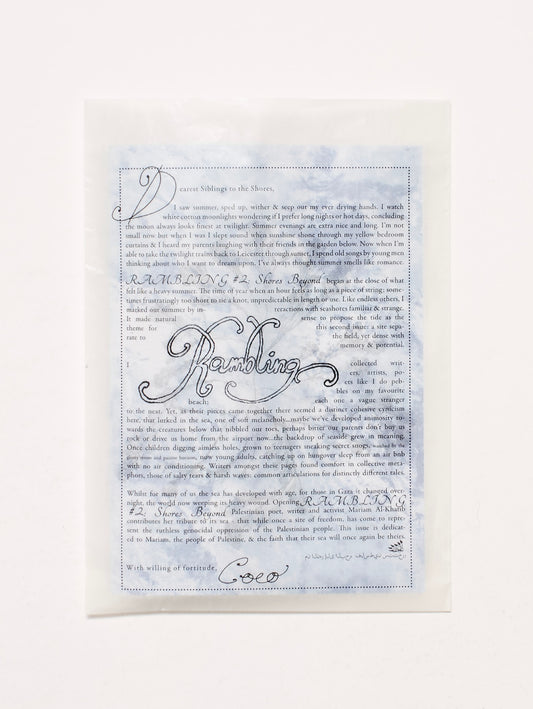 Dearest Siblings to the Shores,
I saw summer, sped up, wither & seep out my ever drying hands. I watch
white cotton moonlights wondering if I prefer long nights or hot days, concluding
the moon always looks finest at twilight. Summer evenings are extra nice and long. I'm not
small now but when I was I slept sound when sunshine shone through my yellow bedroom
curtains & I heard my parents laughing with their friends in the garden below. Now when I'm
able to take the twilight trains back to Leicester through sunset, I spend old songs by young men
thinking about who I want to dream upon. I've always thought summer smells like romance.
RAMBLING #2: Shores Beyond began at the close of what
felt like a heavy summer. The time of year when an hour feels as long as a piece of string; some-
times frustratingly too short to tie a knot, unpredictable in length or use. Like endless others, I
marked our summer by in- teractions with seashores familiar & strange.
It made natural sense to propose the tide as the
theme for this second issue: a site sepa-
rate to the field, yet dense with
memory & potential.
Rambling
I collected writ-
ers, artists, po-
ets like I do peb-
bles on my favourite
beach; each one a vague stranger
to the next. Yet, as their pieces came together there seemed a distinct cohesive cynicism
here, that lurked in the sea, one of soft melancholy...maybe we've developed animosity to-
wards the creatures below that nibbled our toes, perhaps bitter our parents don't buy us
rock or drive us home from the airport now...the backdrop of seaside grew in meaning.
Once children digging aimless holes, grown to teenagers sneaking secret snogs, watched by the
young adults, catching up on hungover sleep from an air bnb
with no air conditioning. Writers amongst these pages found comfort in collective meta-
phors, those of salty tears & harsh waves: common articulations for distinctly different tales.
Whilst for many of us the sea has developed with age, for those in Gaza it changed over-
night, the world now seeping its heavy wound. Opening RAMBLING
#2: Shores Beyond Palestinian poet, writer and activist Mariam Al-Khatib
contributes her tribute to its sea - that while once a site of freedom, has come to repre-
sent the ruthless genocidal oppression of the Palestinian people. This issue is dedicat-
ed to Mariam, the people of Palestine, & the faith that their sea will once again be theirs.
من النهر إلى البحر، فلسطين ستتحرر
With willing of fortitude, Coco